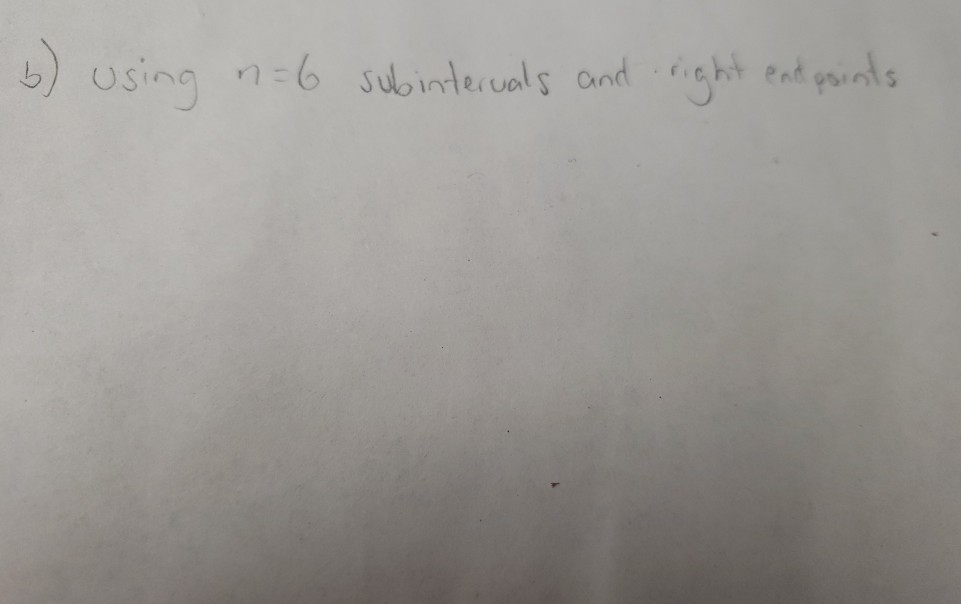 b) Using n=6 subintervals and right endpoints